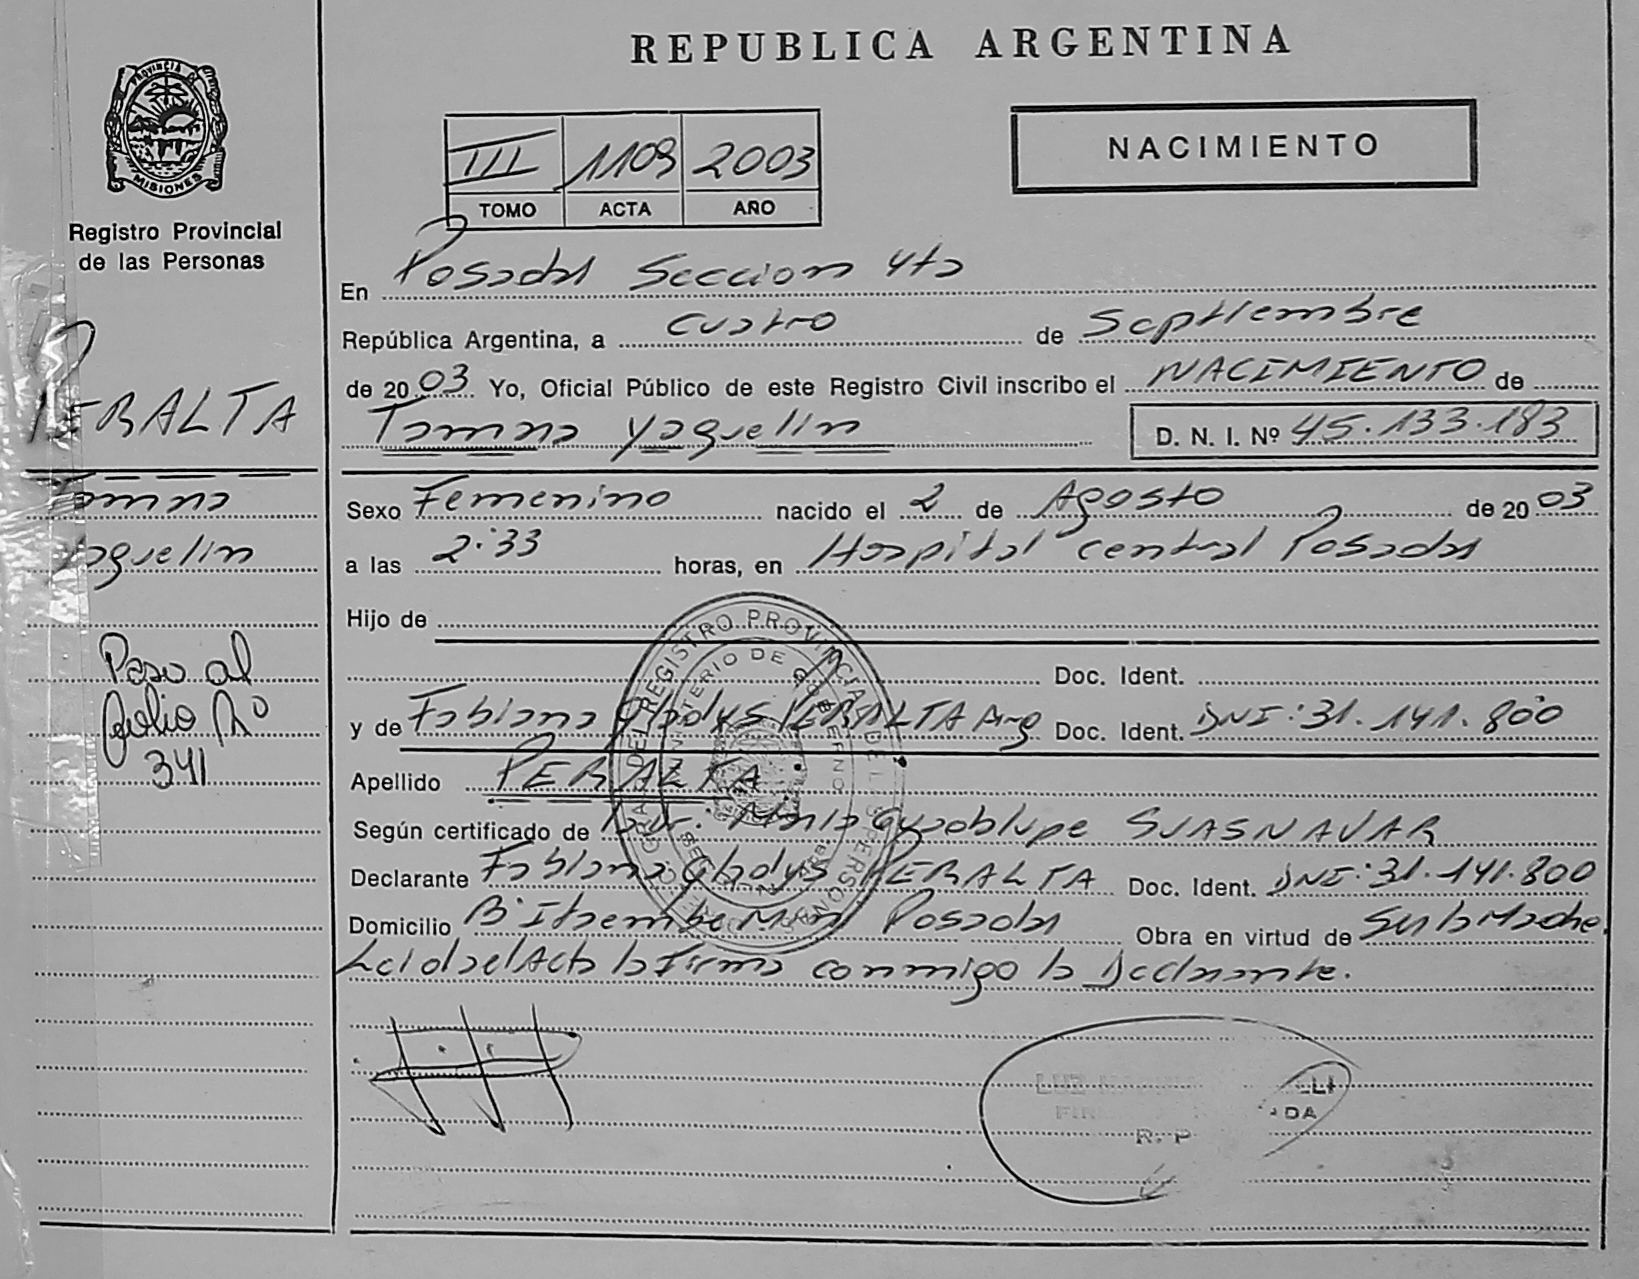 REPUBLICA ARGENTINA
PROVINCIA DE
MISIONES
Registro Provincial
de las Personas
III 1109 2003
TOMO ACTA AÑO
NACIMIENTO
En Posadas Seccion 4ta
República Argentina, a Cuatro de Septiembre
de 2003 Yo, Oficial Público de este Registro Civil inscribo el NACIMIENTO de
Tamna Yaquelin D. N. I. Nº 45.133.183
PERALTA
Tamna
Yaquelin
Paso al
folio Nº
341
Sexo Femenino nacido el 2 de Agosto de 2003
a las 2:33 horas, en Hospital central Posadas
Hijo de
Doc. Ident.
y de Fabiana Gladys PERALTA Arg. Doc. Ident. DNI: 31.141.800
Apellido PERALTA
Según certificado de Guadalupe SUASNAVAR
Declarante Fabiana Gladys PERALTA Doc. Ident. DNI: 31.141.800
Domicilio Bº Itaembe Mini Posadas Obra en virtud de Ser la Madre.
Leida el Acta la Firma conmigo la Declarante.
REGISTRO PROVINCIAL DE LAS PERSONAS
MINISTERIO DE GOBIERNO
R. P